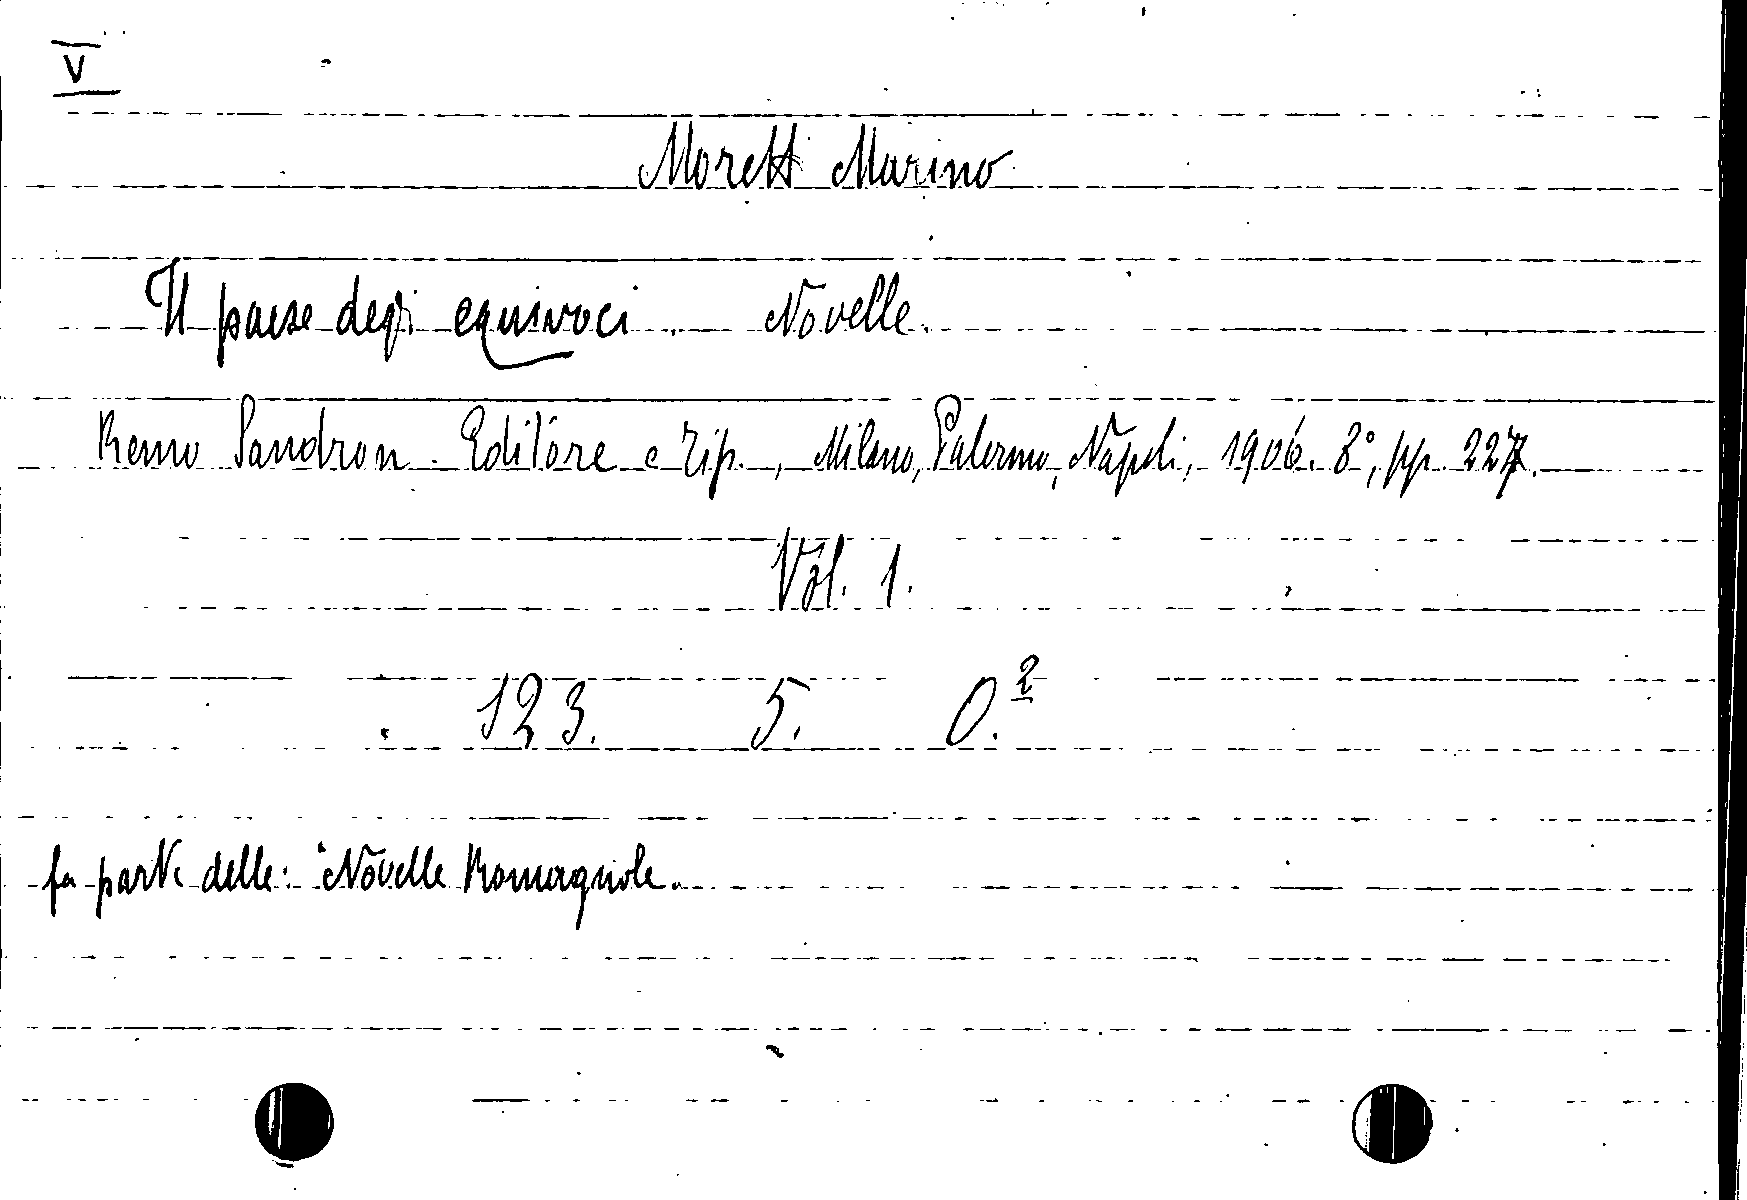 V
Moretti Marino
Il paese degli equivoci. Novelle.
Remo Sandron. Editore e Tip., Milano, Palermo, Napoli, 1906. 8°, pp. 227.
Vol. 1.
123. 5. O.2
fa parte delle: "Novelle Romagnole.